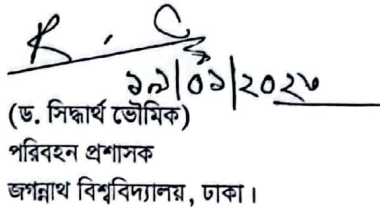 ১৯/০১/২০২৬
(ড. সিদ্ধার্থ ভৌমিক)
পরিবহন প্রশাসক
জগন্নাথ বিশ্ববিদ্যালয়, ঢাকা।